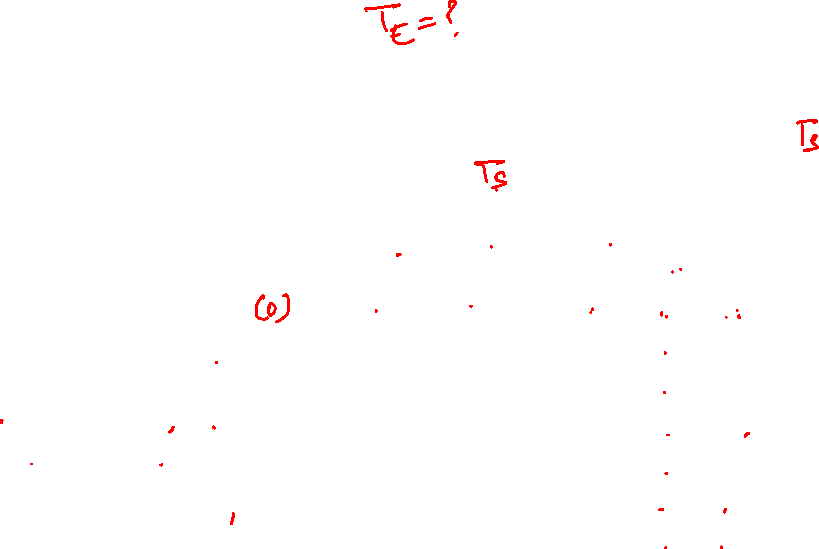 T_E = ?
T_s
T_s
(0)